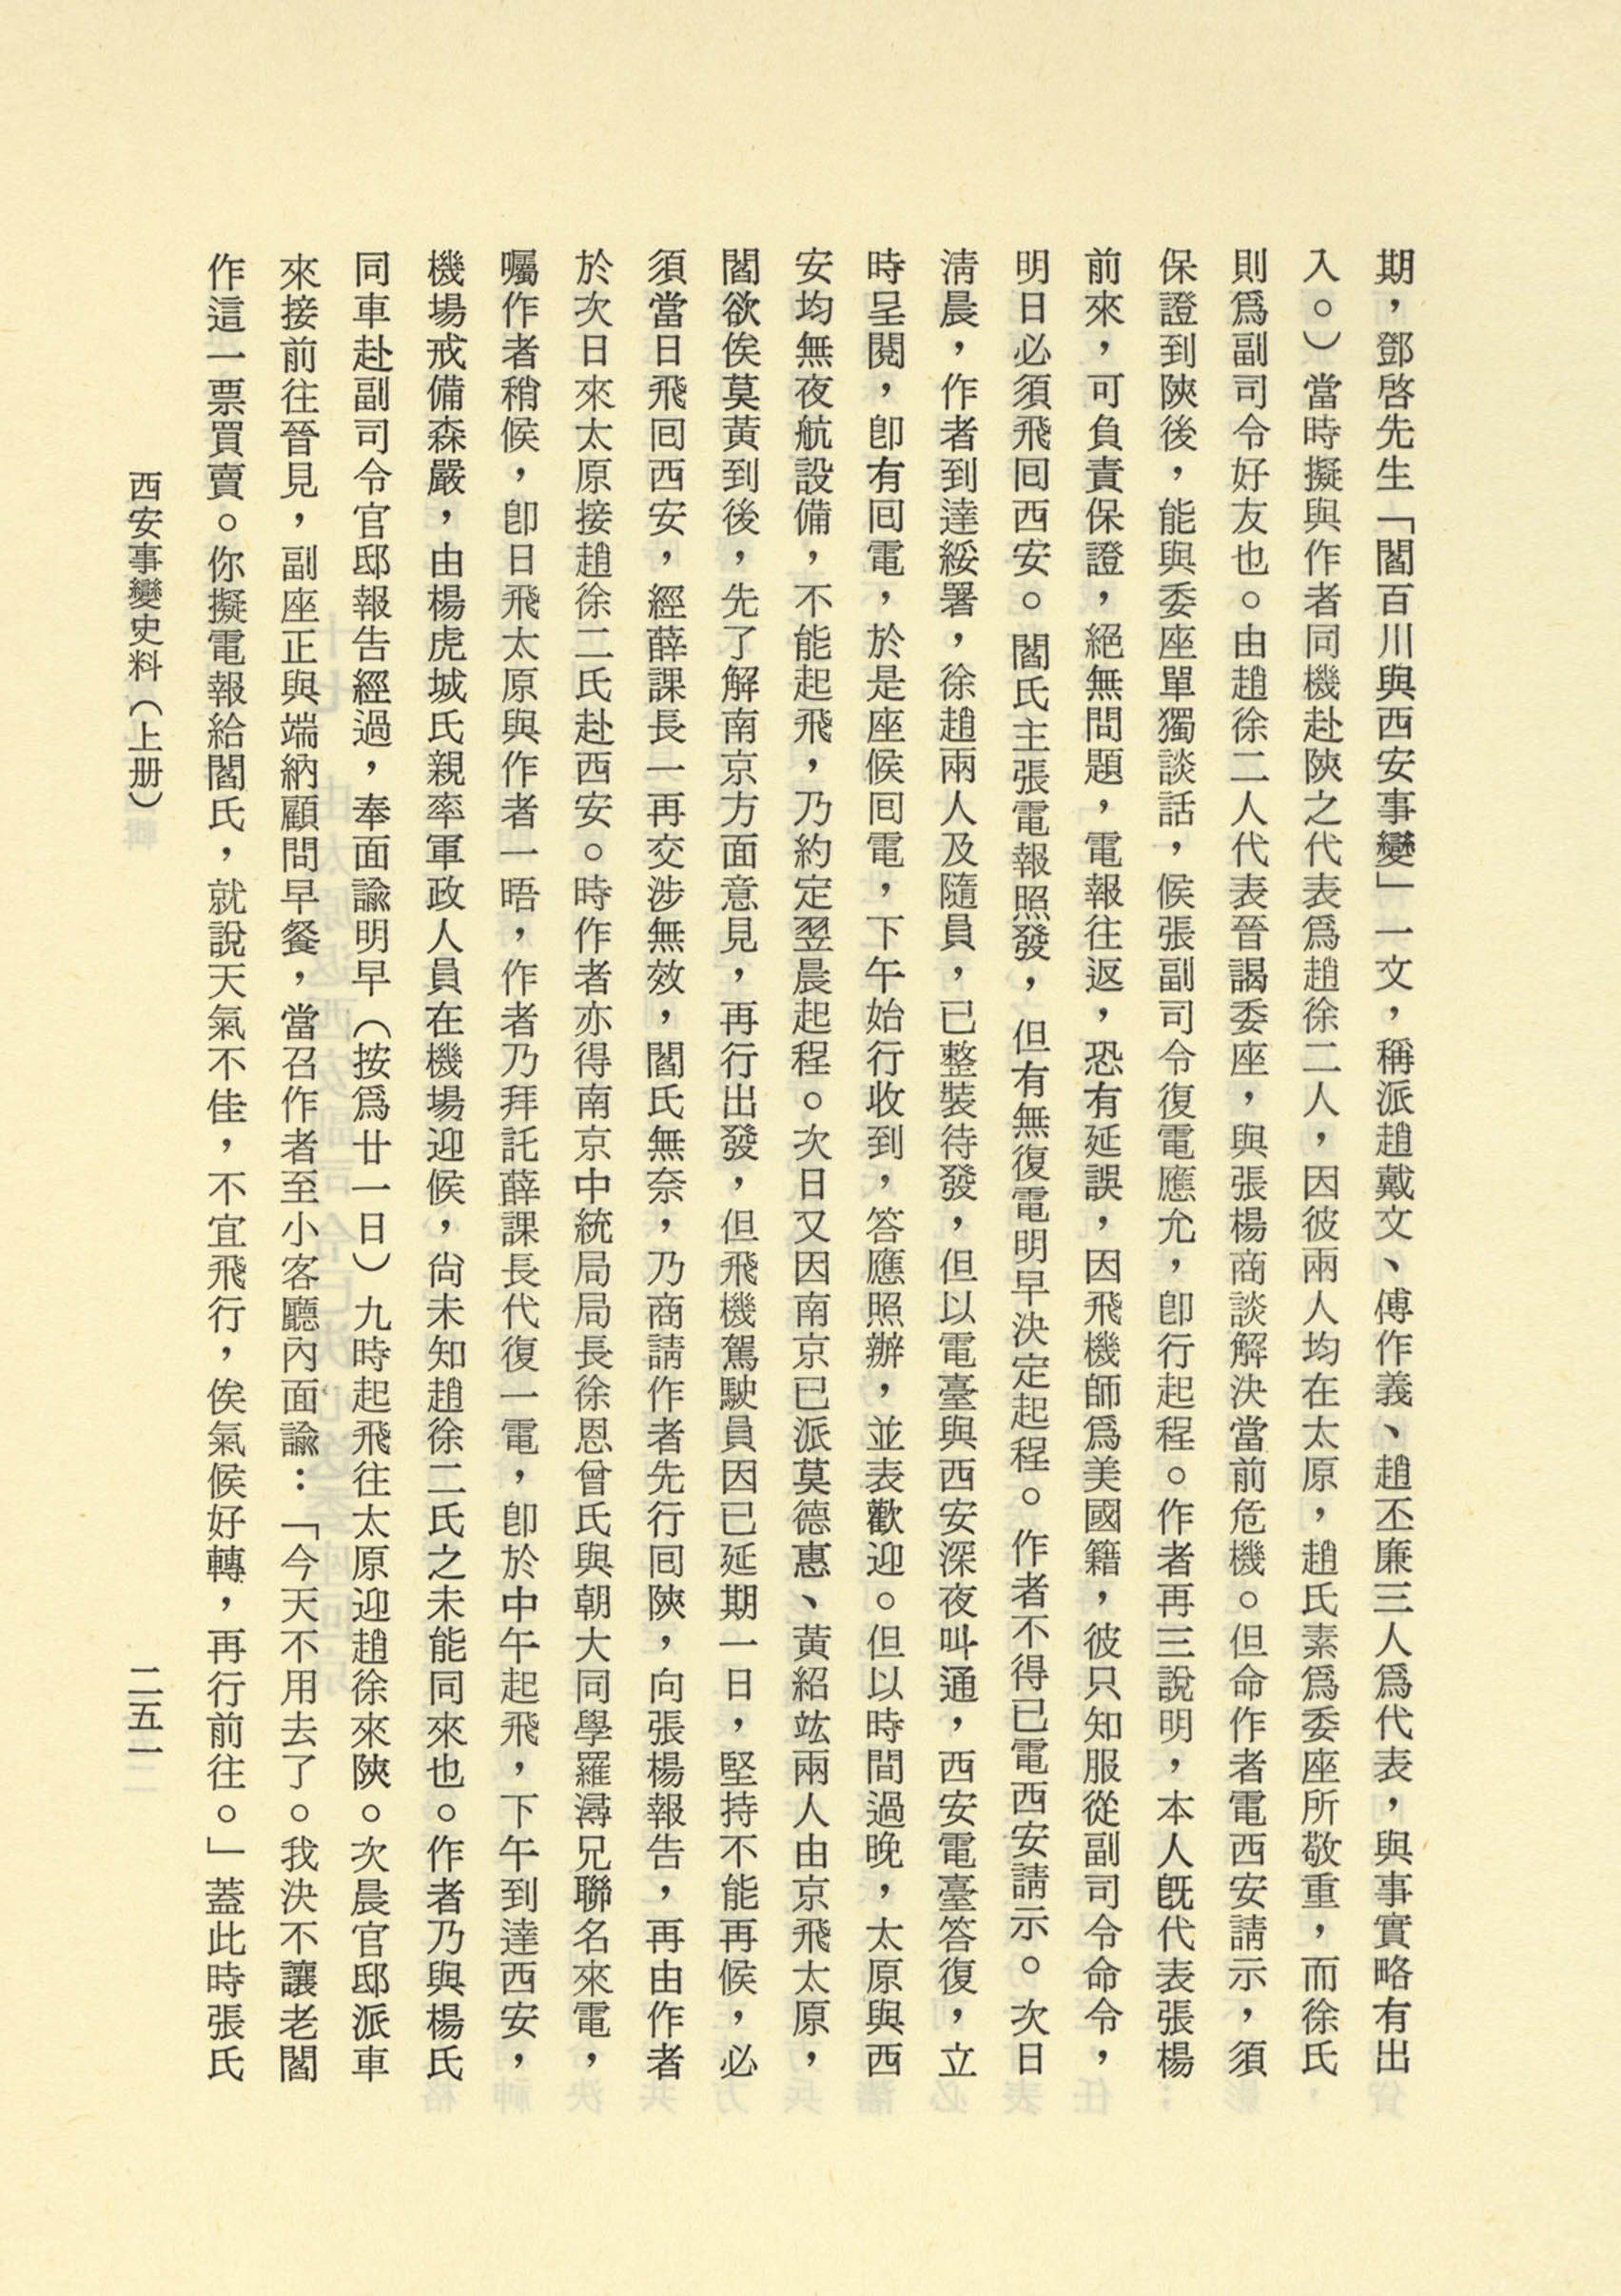 期，鄧啓先生「閻百川與西安事變」一文，稱派趙戴文、傅作義、趙丕廉三人爲代表，與事實略有出
入。）當時擬與作者同機赴陝之代表爲趙徐二人，因彼兩人均在太原，趙氏素爲委座所敬重，而徐氏
則爲副司令好友也。由趙徐二人代表晉謁委座，與張楊商談解決當前危機。但命作者電西安請示，須
保證到陝後，能與委座單獨談話，候張副司令復電應允，卽行起程。作者再三說明，本人旣代表張楊
前來，可負責保證，絕無問題，電報往返，恐有延誤，因飛機師爲美國籍，彼只知服從副司令命令，
明日必須飛囘西安。閻氏主張電報照發，但有無復電明早決定起程。作者不得已電西安請示。次日
淸晨，作者到達綏署，徐趙兩人及隨員，已整裝待發，但以電臺與西安深夜叫通，西安電臺答復，立
時呈閱，卽有囘電，於是座候囘電，下午始行收到，答應照辦，並表歡迎。但以時間過晚，太原與西
安均無夜航設備，不能起飛，乃約定翌晨起程。次日又因南京已派莫德惠、黃紹竑兩人由京飛太原，
閻欲俟莫黃到後，先了解南京方面意見，再行出發，但飛機駕駛員因已延期一日，堅持不能再候，必
須當日飛囘西安，經薛課長一再交涉無效，閻氏無奈，乃商請作者先行囘陝，向張楊報告，再由作者
於次日來太原接趙徐二氏赴西安。時作者亦得南京中統局局長徐恩曾氏與朝大同學羅潯兄聯名來電，
囑作者稍候，卽日飛太原與作者一晤，作者乃拜託薛課長代復一電，卽於中午起飛，下午到達西安，
機場戒備森嚴，由楊虎城氏親率軍政人員在機場迎候，尙未知趙徐二氏之未能同來也。作者乃與楊氏
同車赴副司令官邸報告經過，奉面諭明早（按爲廿一日）九時起飛往太原迎趙徐來陝。次晨官邸派車
來接前往晉見，副座正與端納顧問早餐，當召作者至小客廳內面諭：「今天不用去了。我決不讓老閻
作這一票買賣。你擬電報給閻氏，就說天氣不佳，不宜飛行，俟氣候好轉，再行前往。」蓋此時張氏
西安事變史料（上册）
二五一